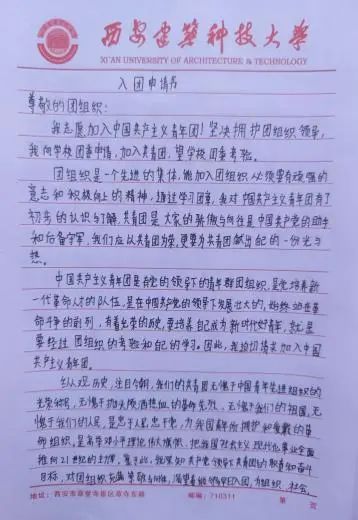 西安建筑科技大学
XI'AN UNIVERSITY OF ARCHITECTURE & TECHNOLOGY
入团申请书
尊敬的团组织:
我志愿加入中国共产主义青年团!坚决拥护团组织领导,
我向学校团委申请,加入共青团,望学校团委考验。
团组织是一个先进的集体,能加入团组织必须要有顽强的
意志和积极向上的精神,通过学习团章,我对中国共产主义青年团有了
初步的认识与了解,共青团是大家的骄傲与向往是中国共产党的助手
和后备军,我们应以共青团为荣,更要为共青团献出自己的一份光与
热。
中国共产主义青年团是在党的领导下的青年群团组织,是党培养新
一代革命人才的队伍,是在中国共产党的领导下发展壮大的,始终站在革
命斗争的前列,有着光荣的历史,要培养自己成为新时代好青年,就是
要经过团组织的考验和自己的学习。因此,我迫切请求加入中国
共产主义青年团。
纵观历史,注目今朝,我们的共青团无愧于中国青年先进组织的
光荣称号,无愧于抛头颅洒热血的革命先烈,无愧于我们的祖国,无
愧于我们的人民,是忠于人民忠于党,为我国解放拥护和爱戴的革
命组织,是高举邓小平理论伟大旗帜,把我国社会主义现代化事业全面
推向21世纪的主力军,鉴于此,我深知共产党领导下共青团的职责和奋斗
目标,对团组织充满崇敬与向往,渴望着能够早日入团,为组织、社会、
地址:西安市草堂寺
邮编:710311
第 页